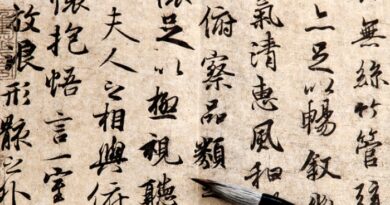 無絲竹管弦
亦足以暢叙
氣清惠風和
俯察品類
懷足以極視聽
夫人之相與俯
懷抱悟言一室
放浪形骸之外